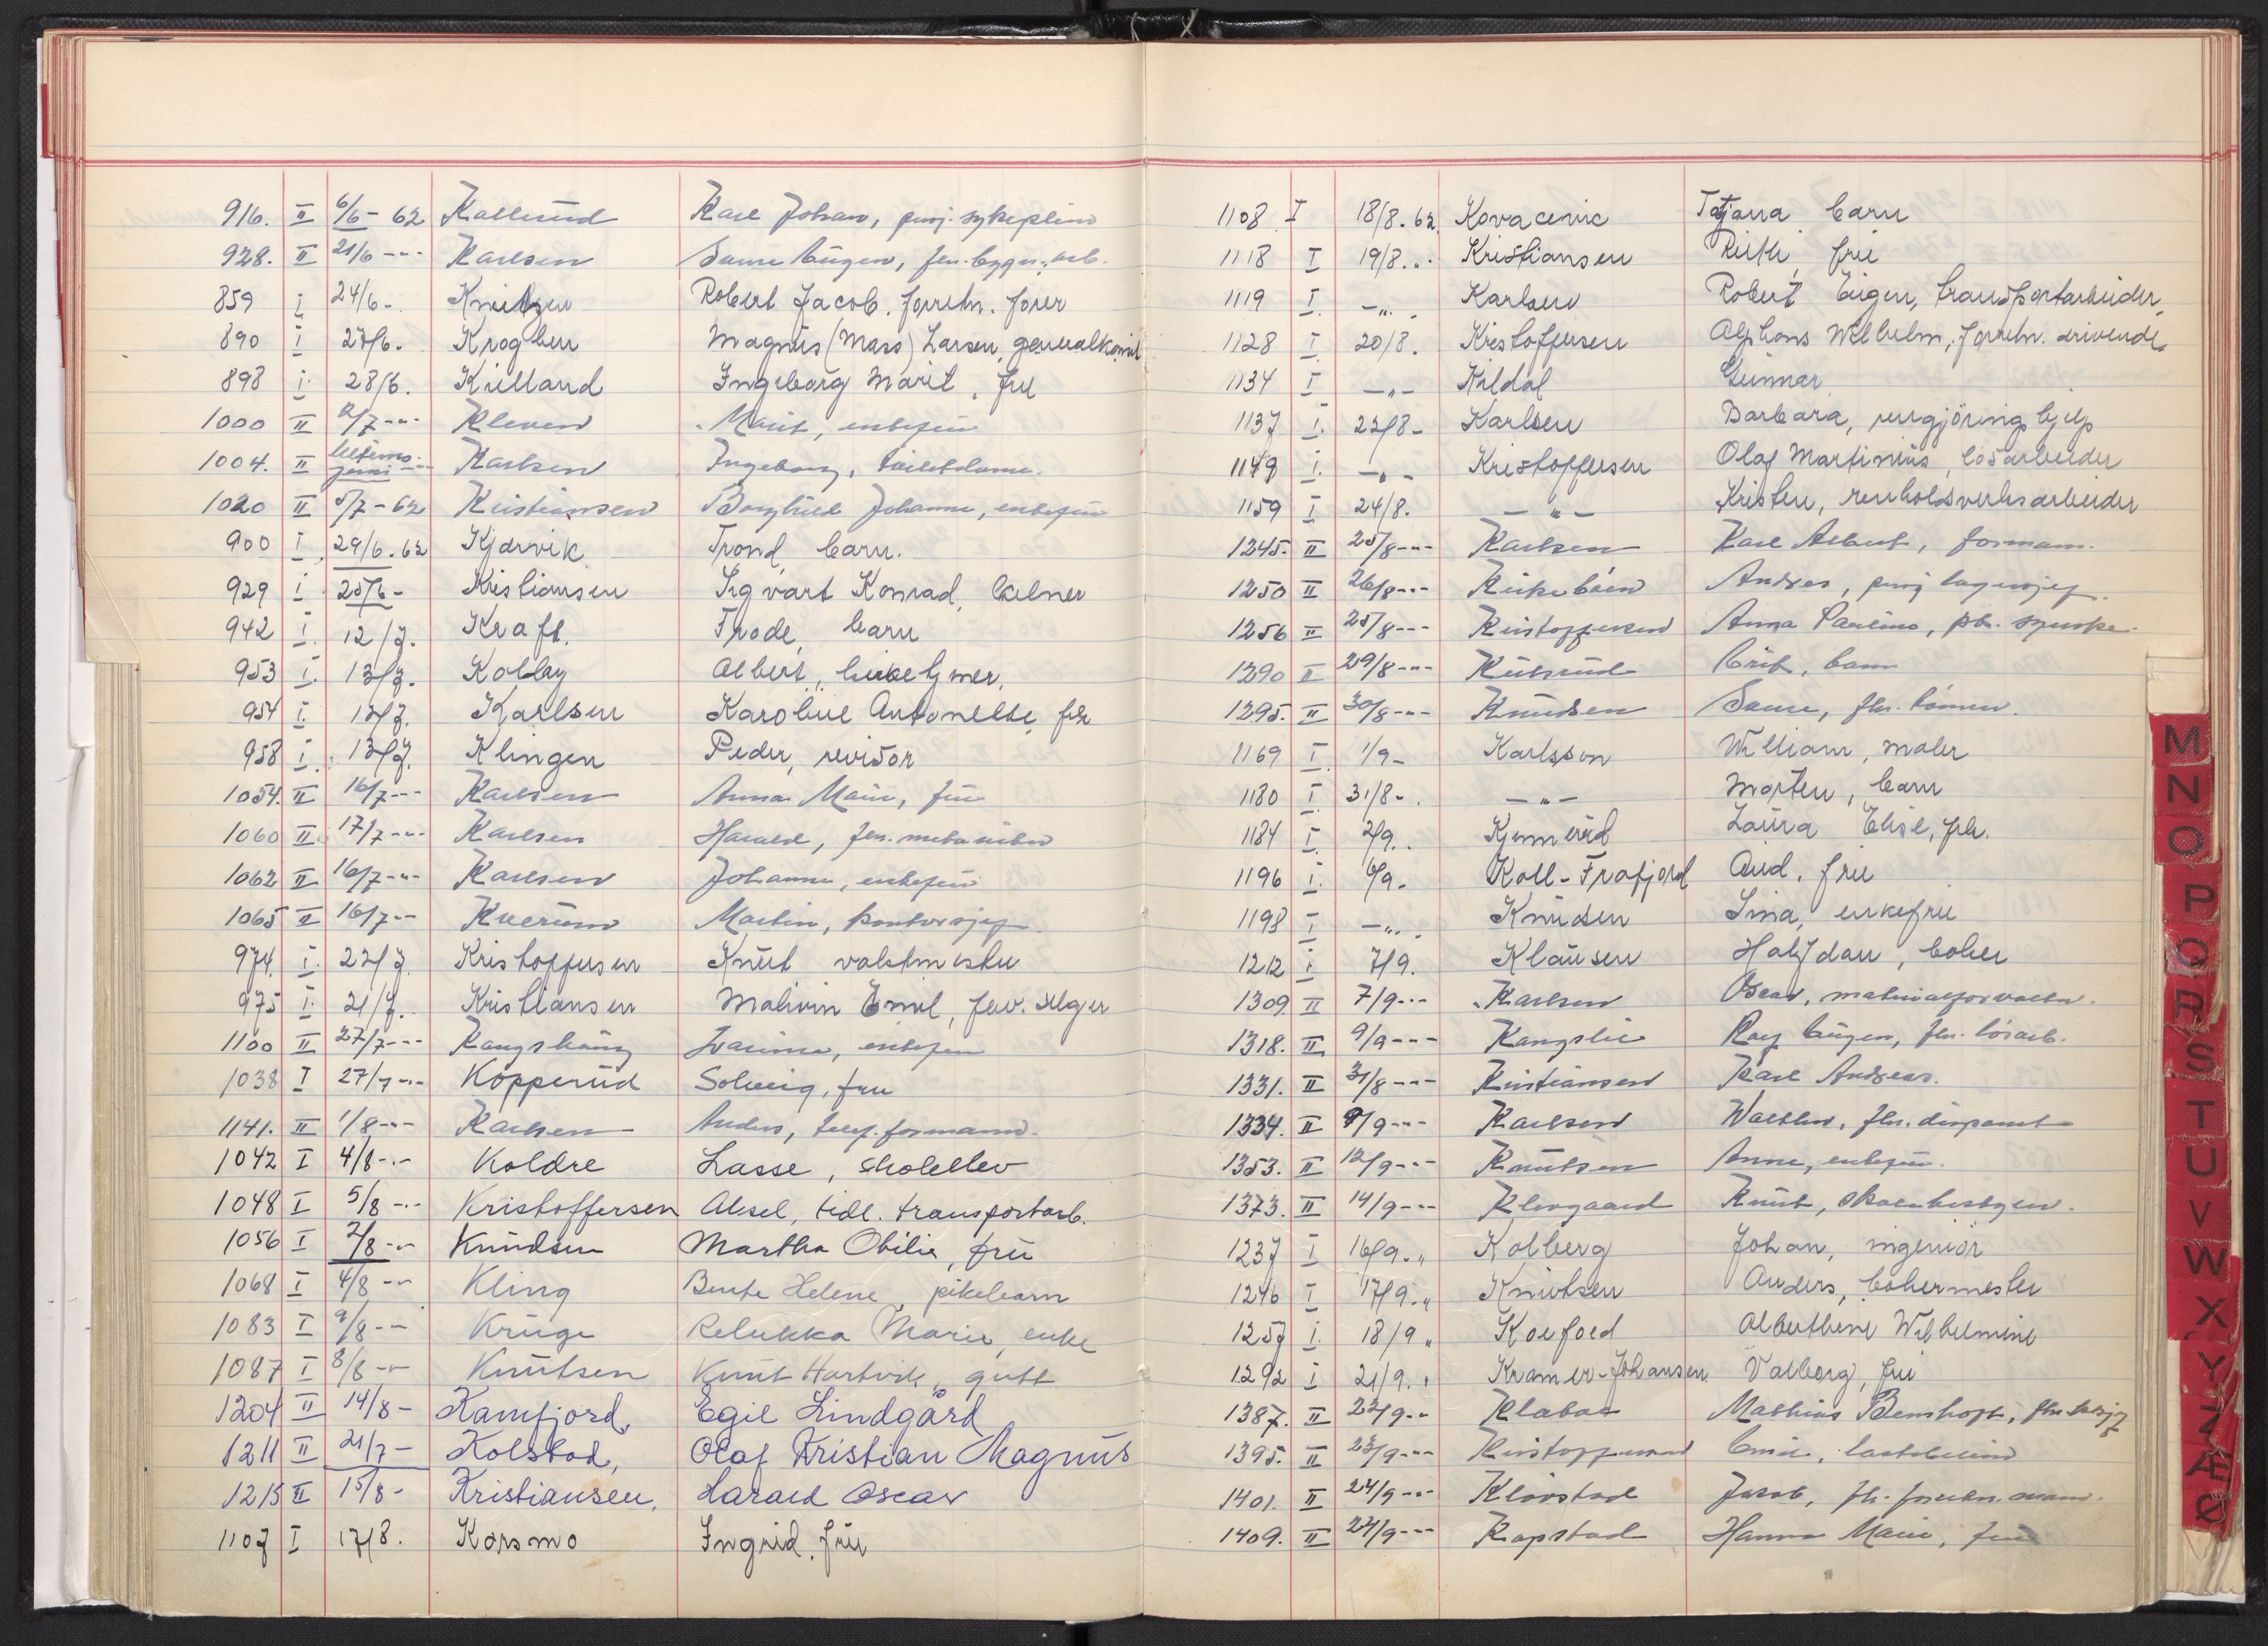 916. II 6/6-62 Kallerud Karl Johan, pensj. sykepleier
928. II 21/6-"- Karlsen Eugen, fhv. bygn. arb.
859 I 24/6- Knutzen Robert Jacob. forretn. fører
890 I 27/6. Kroghen Magnus (Mass) Larsen, generalkonsul
898 I. 28/6. Kielland Ingeborg Marit, fru
1000 II 2/7-"- Kleven Marit, enkefru
1004. II Karlsen Ingeborg, toilettdame.
1020 II 5/7-62 Kristiansen Borghild Johanne, enkefru
900 I 29/6.62 Kjærvik Trond, barn.
929 I 25/6- Kristiansen Sigvart Konrad, kelner
942 I. 12/7. Kraft. Frode, barn
953 I. 13/7. Kolby Albert, kirketjener,
954 I. 12/7. Karlsen Karoline Antonette, frk
958 I. 13/7. Klingen Peder, revisor
1054. II 16/7-"- Karlsen Anna Marie, fru
1060 II 17/7-"- Karlsen Harald, fhv. mekaniker
1062 II 16/7-"- Karlsen Johanne, enkefru
1065 II 16/7-"- Kverum Martin, kontorsjef
974. I. 22/7 Kristoffersen Knut vaktmester
975 I. 21/7. Kristiansen Malivin Emil, fhv. selger
1100 II 27/7-"- Kangshaug enkefru
1038 I 27/7-"- Kopperud Solveig, fru
1141. II 1/8-"- Karlsen Anders, telef. formann.
1042 I 4/8-"- Koldre Lasse, skoleelev
1048 I 5/8-"- Kristoffersen Aksel, tidl. transportarb.
1056 I 2/8-"- Knudsen Martha Otilie, fru
1068 I 4/8-"- Kling Bente Helene, pikebarn
1083 I 9/8-"- Kruge Rebekka Marie, enke
1087 I 8/8-"- Knutsen Knut Hartvik, gutt
1204 II 14/8- Kamfjord, Egil Lindgård
1211 II 21/7- Kolstad, Olaf Kristian Magnus
1215 II 15/8- Kristiansen, Harald Oscar
1107 I 17/8. Korsmo Ingrid, fru
1108 I 18/8.62. Kovacevic Tatjana barn
1118 I 19/8.". Kristiansen Ruth, fru
1119 I. -"- Karlsen Robert Eigen, transportarbeider,
1128 I 20/8. Kristoffersen Alphons Wilhelm, forretn. drivende
1134 I -"- Kildal Gunnar
1137 I. 22/8- Karlsen Barbara, rengjøringshjelp
1149 I. -"- Kristoffersen Olaf Martinius, løsarbeider
1159 I 24/8. -"- Kristen, renholdsverksarbeider
1245. II 25/8-"- Karlsen Karl Albert, formann.
1250 II 26/8-"- Kirkebøen Andreas, pensj lagersjef.
1256 II 25/8-"- Kristoffersen Anna Pauline, syerske.
1290 II 29/8-"- Kulsrud Brit, barn
1295. II 30/8-"- Knudsen
1169 I 1/9- Karlsson William, maler
1180 I 31/8-. -"- Morten, barn
1184 I 2/9.. Kjennerud Laura Elise, frk.
1196 I. 6/9- Koll-Frafjord Aud, fru
1198 I -". Knudsen Lina, enkefru
1212 I 7/9. Klausen Halfdan, baker
1309 II 7/9-"- Karlsen Oscar, materialforvalter.
1318. II 9/9-"- Kangslie Roy Eugen, fhv. løsarb.
1331. II 31/8-"- Kristiansen Karl Andreas.
1334. II 9/9-"- Karlsen Walther, fhv. disponent
1353. II 12/9-"- Knutsen Anne, enkefru.
1373. II 14/9-"- Klevgaard Knut, skolebestyrer.
1237 I 16/9." Kolberg Johan, ingeniør
1246 I 17/9." Knutsen Anders, bakermester
1257 I. 18/9 " Koefoed Alberthine Wilhelmine
1292 I 21/9." Kramer-Johansen Valborg, fru
1387. II 22/9-" Klabas Mathias
1395. II 23/9-"- Kristoffersen Emil, lastebileier
1401. II 24/9-"- Kløvstad Jacob, fhv. forretn. mann.
1409. II 24/9-"- Kapstad Hanna Marie, fru
M
N
O
P
Q
R
S
T
U
V
W
X
Y
Z
Æ
Ø